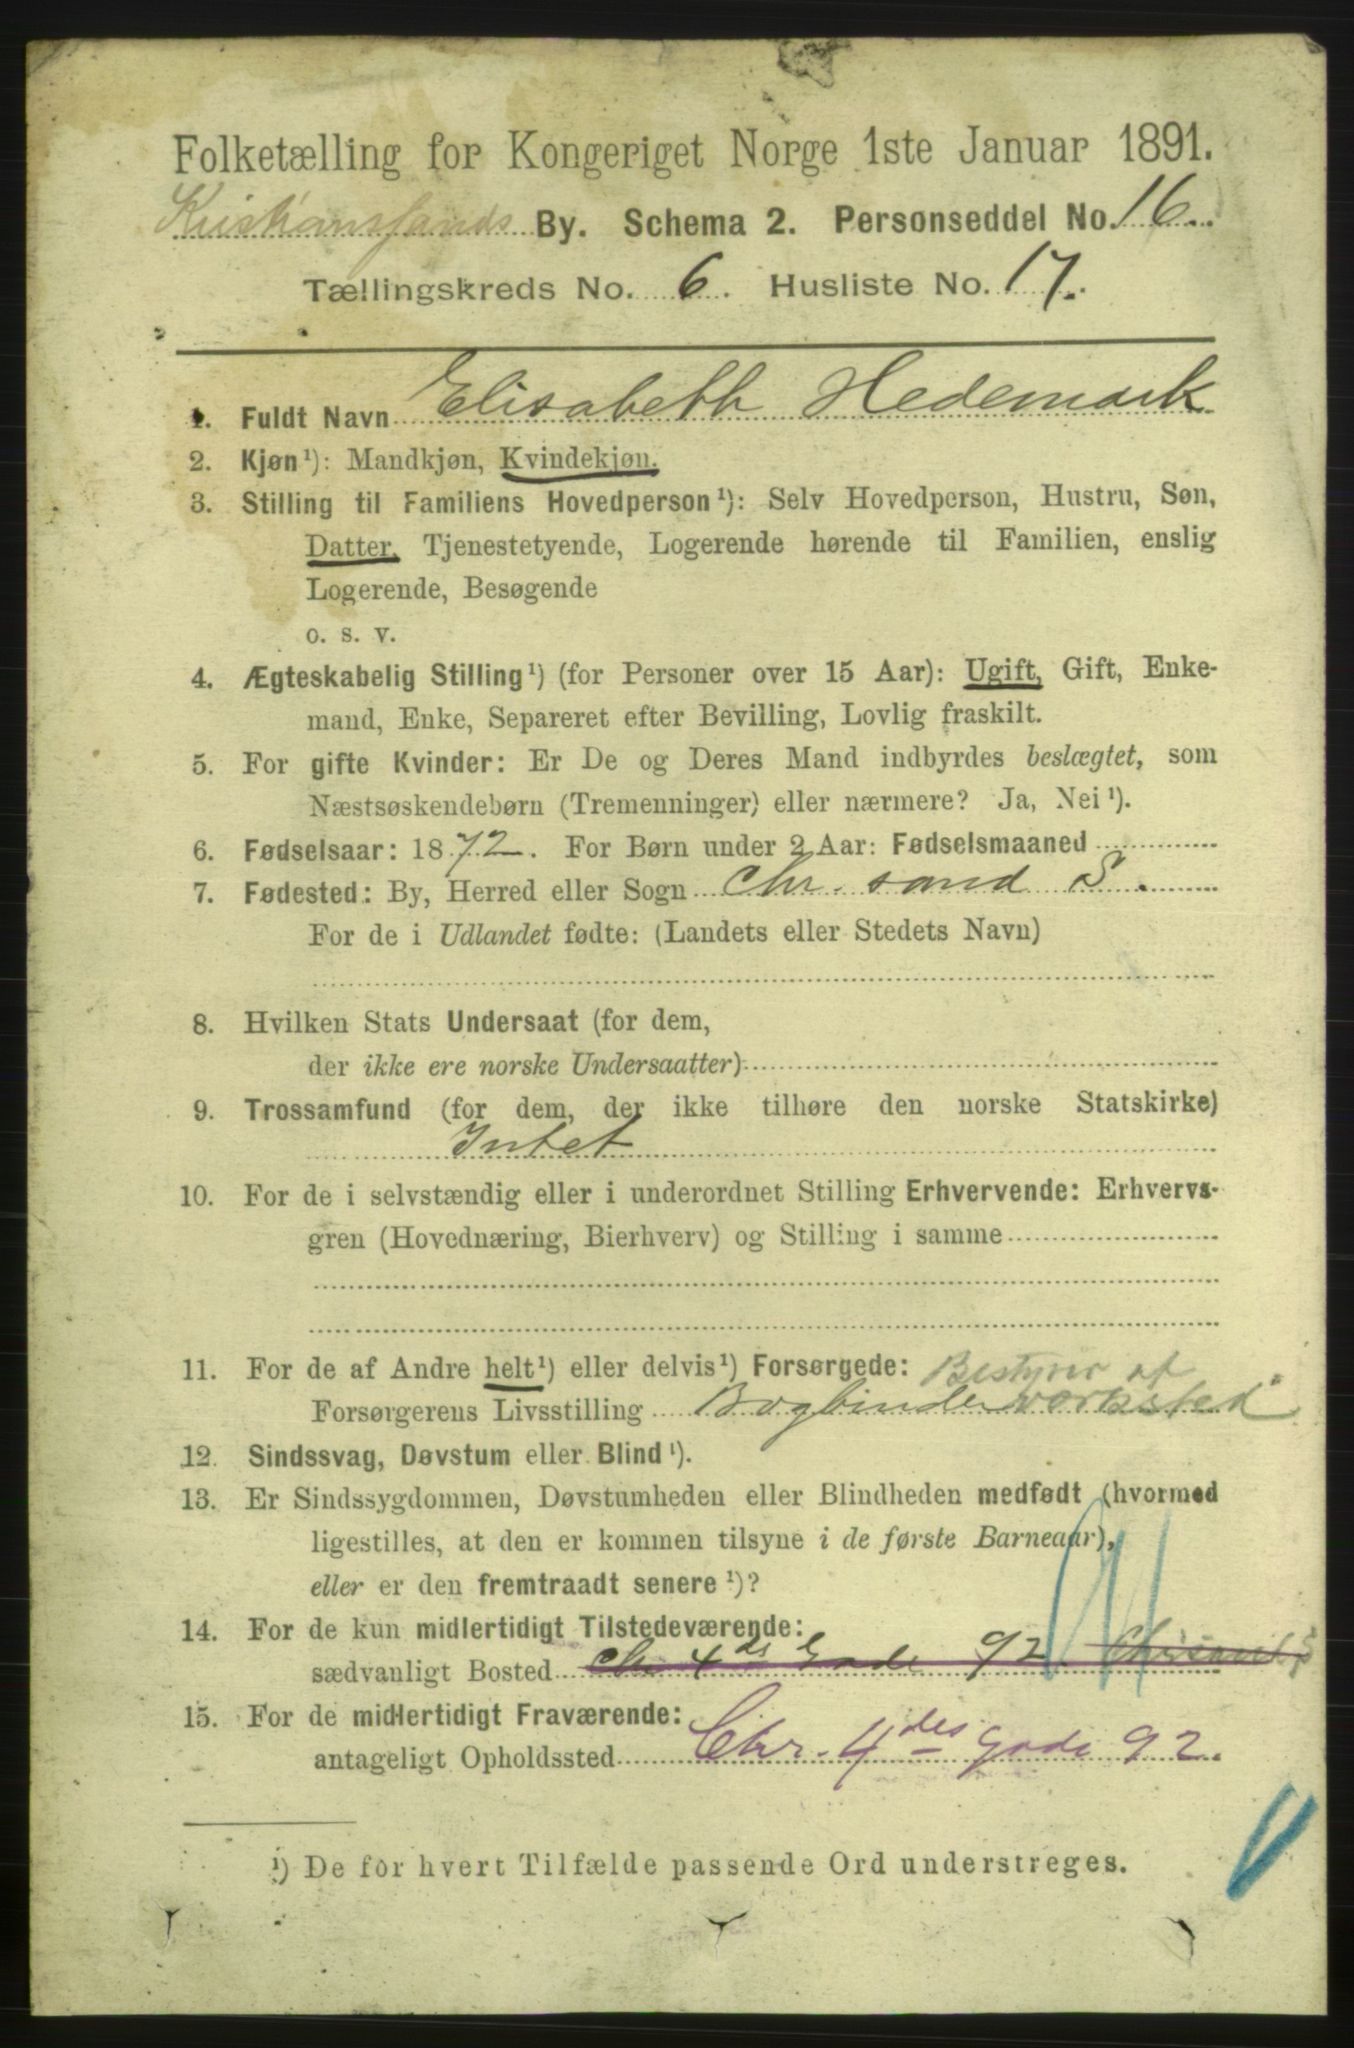 Folketælling for Kongeriget Norge 1ste Januar 1891.
Kristiansands By. Schema 2. Personseddel No. 16.
Tællingskreds No. 6. Husliste No. 17.
1. Fuldt Navn Elisabeth Hedemark
2. Kjøn¹): Mandkjøn, Kvindekjøn.
3. Stilling til Familiens Hovedperson¹): Selv Hovedperson, Hustru, Søn,
Datter, Tjenestetyende, Logerende hørende til Familien, enslig
Logerende, Besøgende
o. s. v.
4. Ægteskabelig Stilling¹) (for Personer over 15 Aar): Ugift, Gift, Enke-
mand, Enke, Separeret efter Bevilling, Lovlig fraskilt.
5. For gifte Kvinder: Er De og Deres Mand indbyrdes beslægtet, som
Næstsøskendebørn (Tremenninger) eller nærmere? Ja, Nei¹).
6. Fødselsaar: 1872. For Børn under 2 Aar: Fødselsmaaned
7. Fødested: By, Herred eller Sogn Chr. sand S.
For de i Udlandet fødte: (Landets eller Stedets Navn)
8. Hvilken Stats Undersaat (for dem,
der ikke ere norske Undersaatter)
9. Trossamfund (for dem, der ikke tilhøre den norske Statskirke)
Intet
10. For de i selvstændig eller i underordnet Stilling Erhvervende: Erhvervs-
gren (Hovednæring, Bierhverv) og Stilling i samme
11. For de af Andre helt¹) eller delvis¹) Forsørgede: Bestyrer af
Forsørgerens Livsstilling Bogbinderværksted
12. Sindssvag, Døvstum eller Blind¹).
13. Er Sindssygdommen, Døvstumheden eller Blindheden medfødt (hvormed
ligestilles, at den er kommen tilsyne i de første Barneaar),
eller er den fremtraadt senere¹)?
14. For de kun midlertidigt Tilstedeværende:
sædvanligt Bosted Chr 4des Gade 92 Chrsand S
15. For de midlertidigt Fraværende:
antageligt Opholdssted Chr. 4des Gade 92.
¹) De for hvert Tilfælde passende Ord understreges.